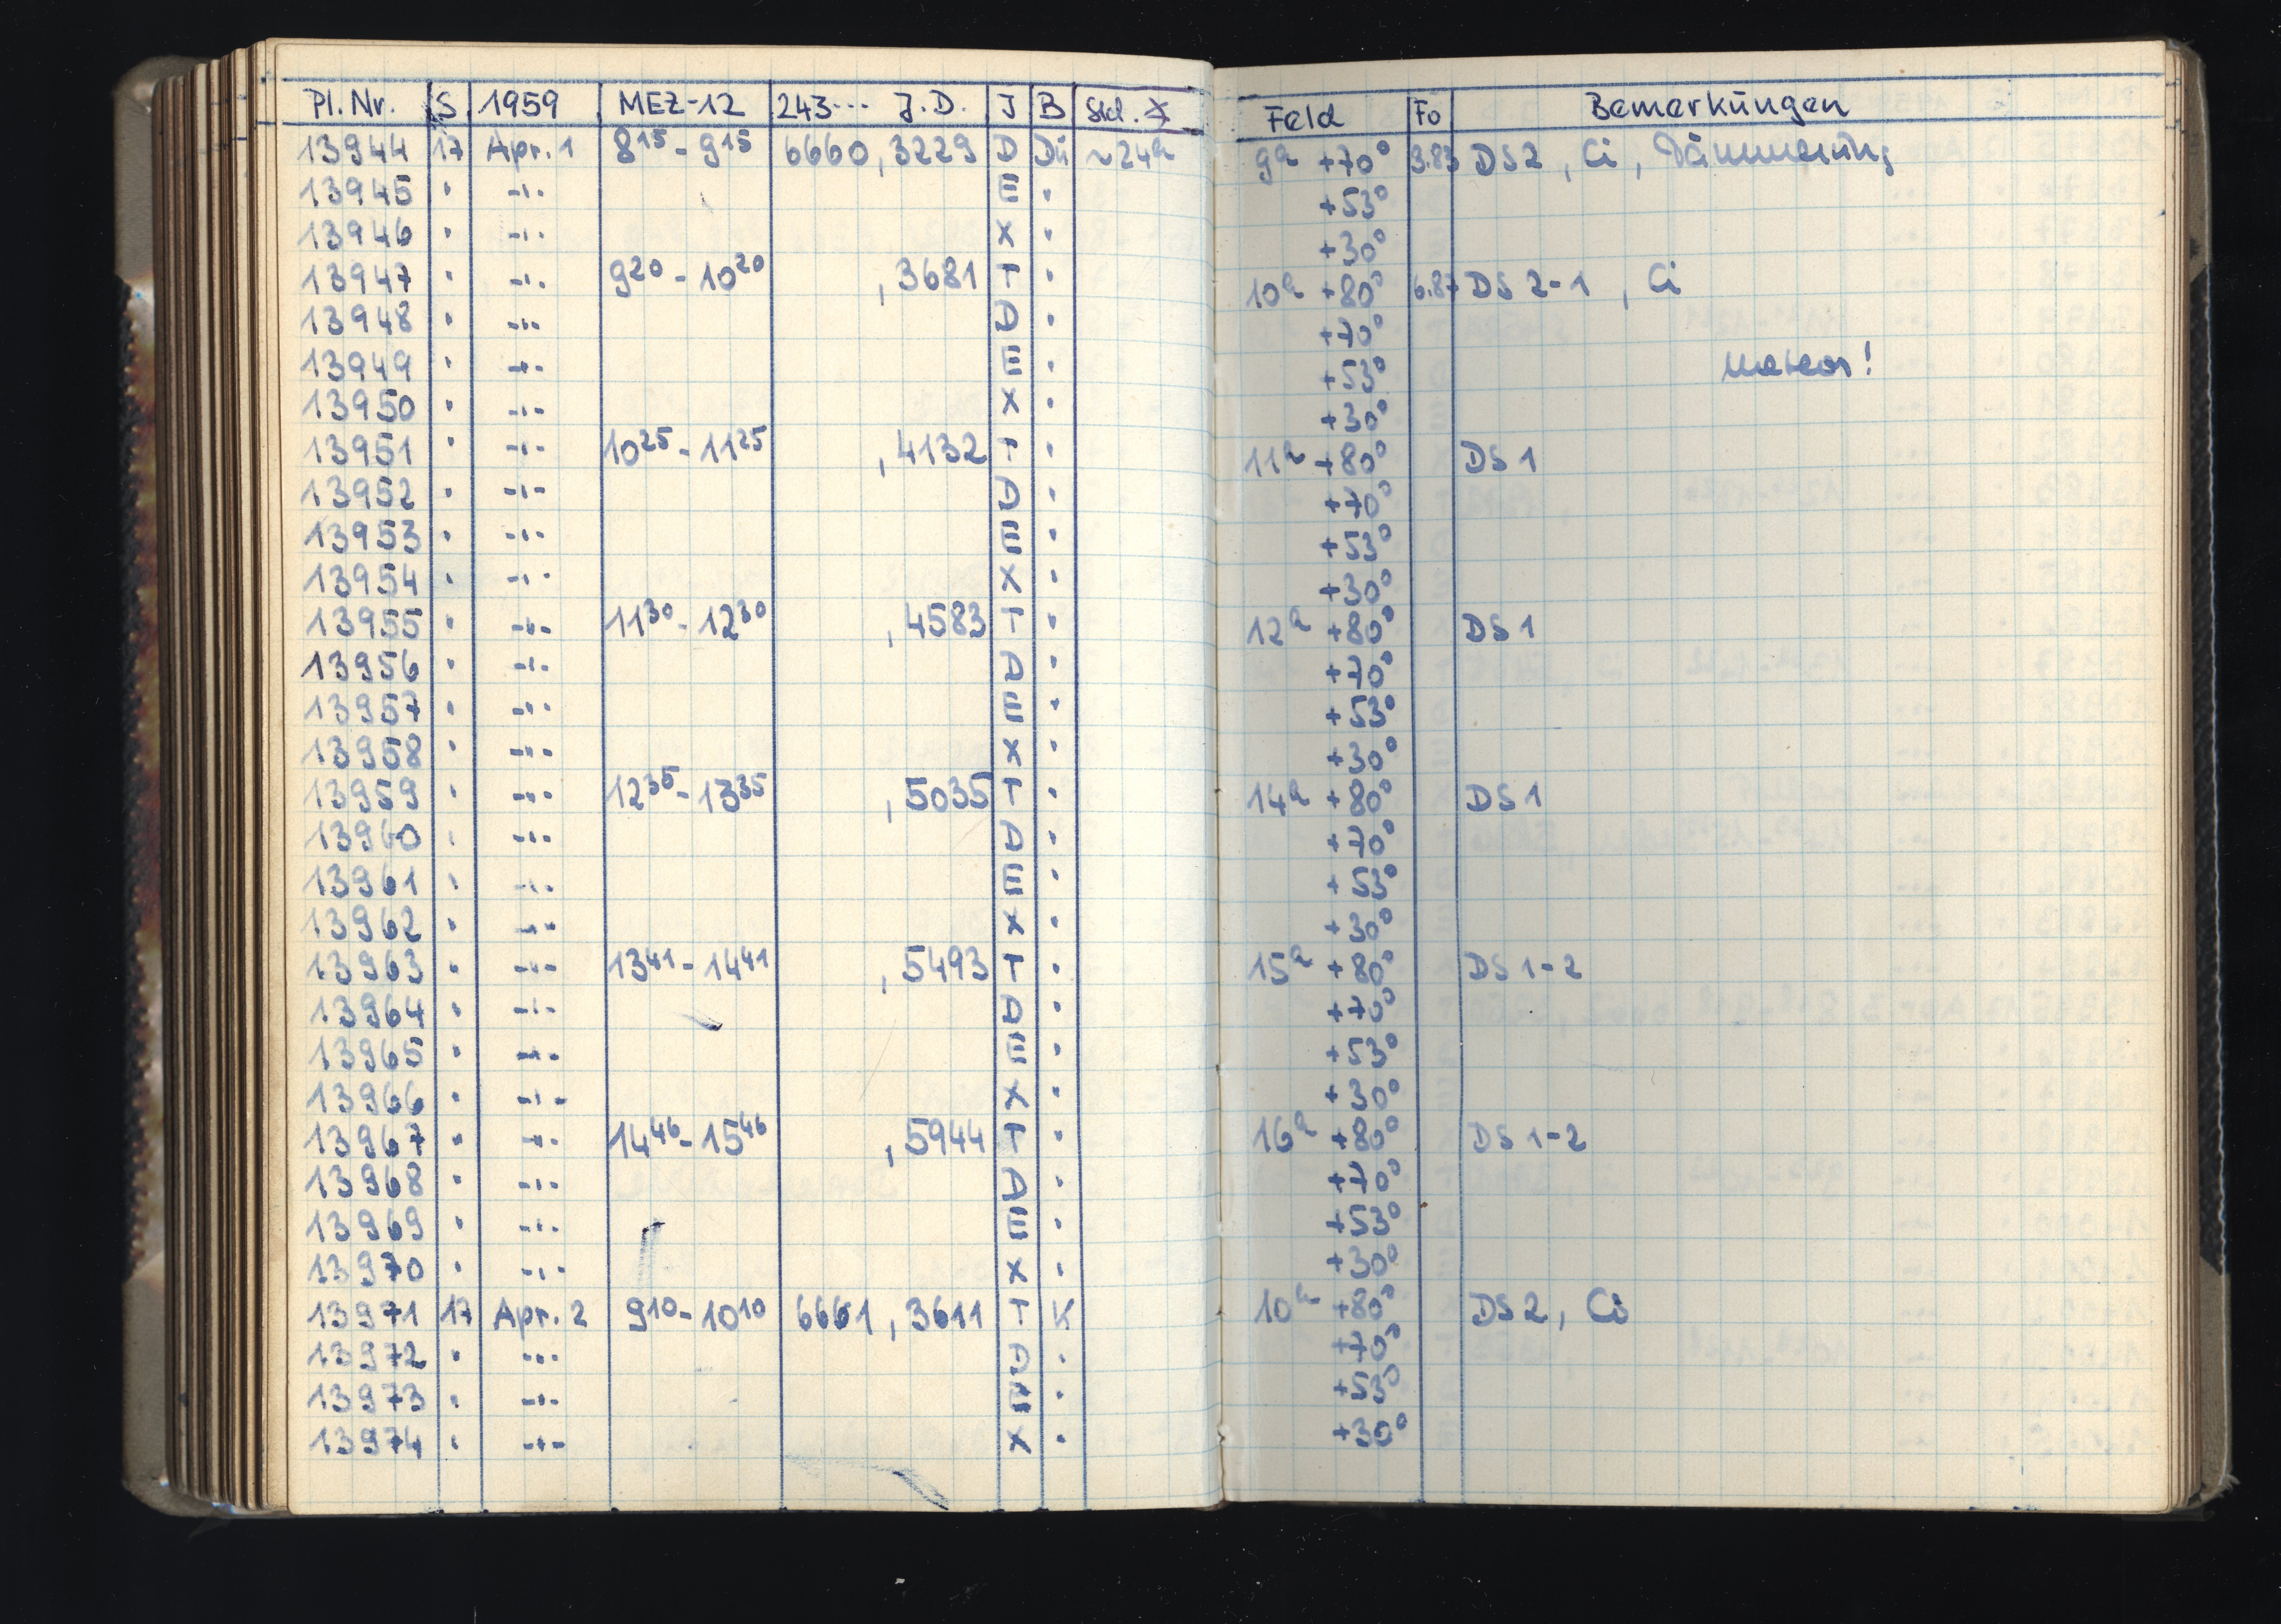 Pl.Nr. S 1959 MEZ-12 243... J.D. J B Feld Fo Bemerkungen
13944 17 Apr. 1 8 15 - 9 15 6660 ,3229 D Dü ~24h 9h +70° 3.83 DS 2 , Ci , Dämmerung
13945 " -"- E " +53°
13946 " -"- X " +30°
13947 " -"- 9 20 - 10 20 ,3681 T " 10h +80° 6.87 DS 2-1 , Ci
13948 " -"- D " +70°
13949 " -"- E " +53° Meteor!
13950 " -"- X " +30°
13951 " -"- 10 25 - 11 25 ,4132 T " 11h +80° DS 1
13952 " -"- D " +70°
13953 " -"- E " +53°
13954 " -"- X " +30°
13955 " -"- 11 30 - 12 30 ,4583 T " 12h +80° DS 1
13956 " -"- D " +70°
13957 " -"- E " +53°
13958 " -"- X " +30°
13959 " -"- 12 35 - 13 35 ,5035 T " 14h +80° DS 1
13960 " -"- D " +70°
13961 " -"- E " +53°
13962 " -"- X " +30°
13963 " -"- 13 41 - 14 41 ,5493 T " 15h +80° DS 1-2
13964 " -"- D " +70°
13965 " -"- E " +53°
13966 " -"- X " +30°
13967 " -"- 14 46 - 15 46 ,5944 T " 16h +80° DS 1-2
13968 " -"- D " +70°
13969 " -"- E " +53°
13970 " -"- X " +30°
13971 17 Apr. 2 9 10 - 10 10 6661 ,3611 T K 10h +80° DS 2, Ci
13972 " -"- D " +70°
13973 " -"- E " +53°
13974 " -"- X " +30°